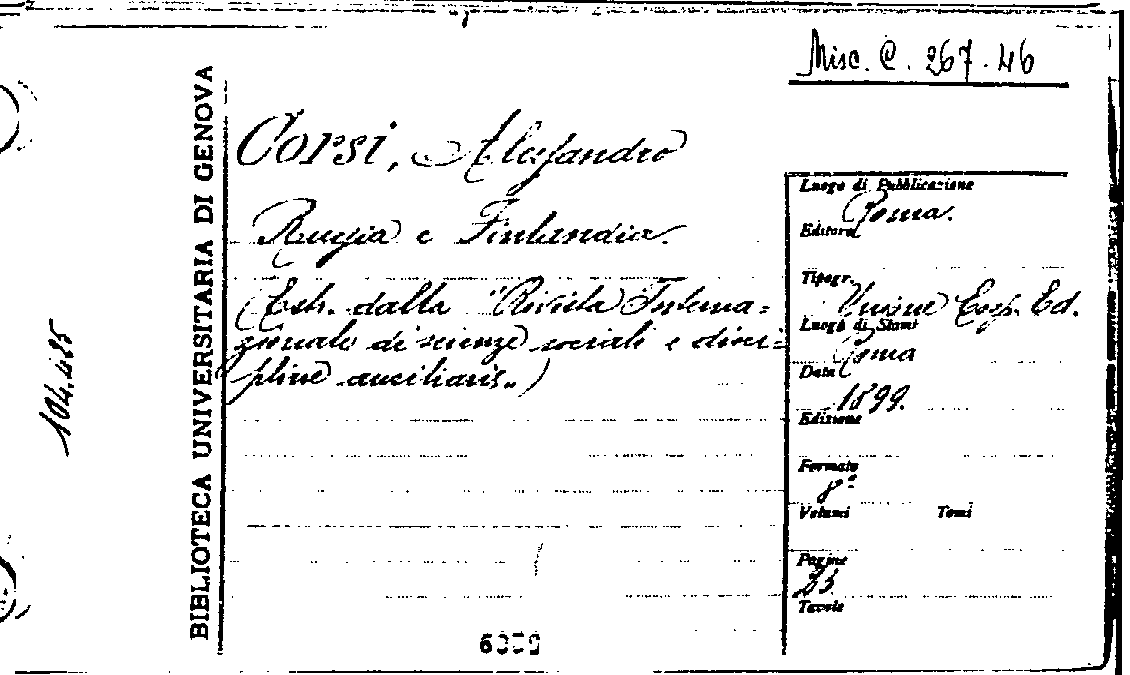 Misc. C. 267.46
BIBLIOTECA UNIVERSITARIA DI GENOVA
Corsi, Alessandro
Russia e Finlandia.
(Estr. dalla "Rivista Interna=
zionale di scienze sociali e disci=
pline ausiliarie.")
Luogo di Pubblicazione
Roma.
Editore
Tipogr.
Unione Coop. Ed.
Luogo di Stampa
Roma
Data
1899.
Edizione
Formato
8º
Volumi Tomi
Pagine
23.
Tavole